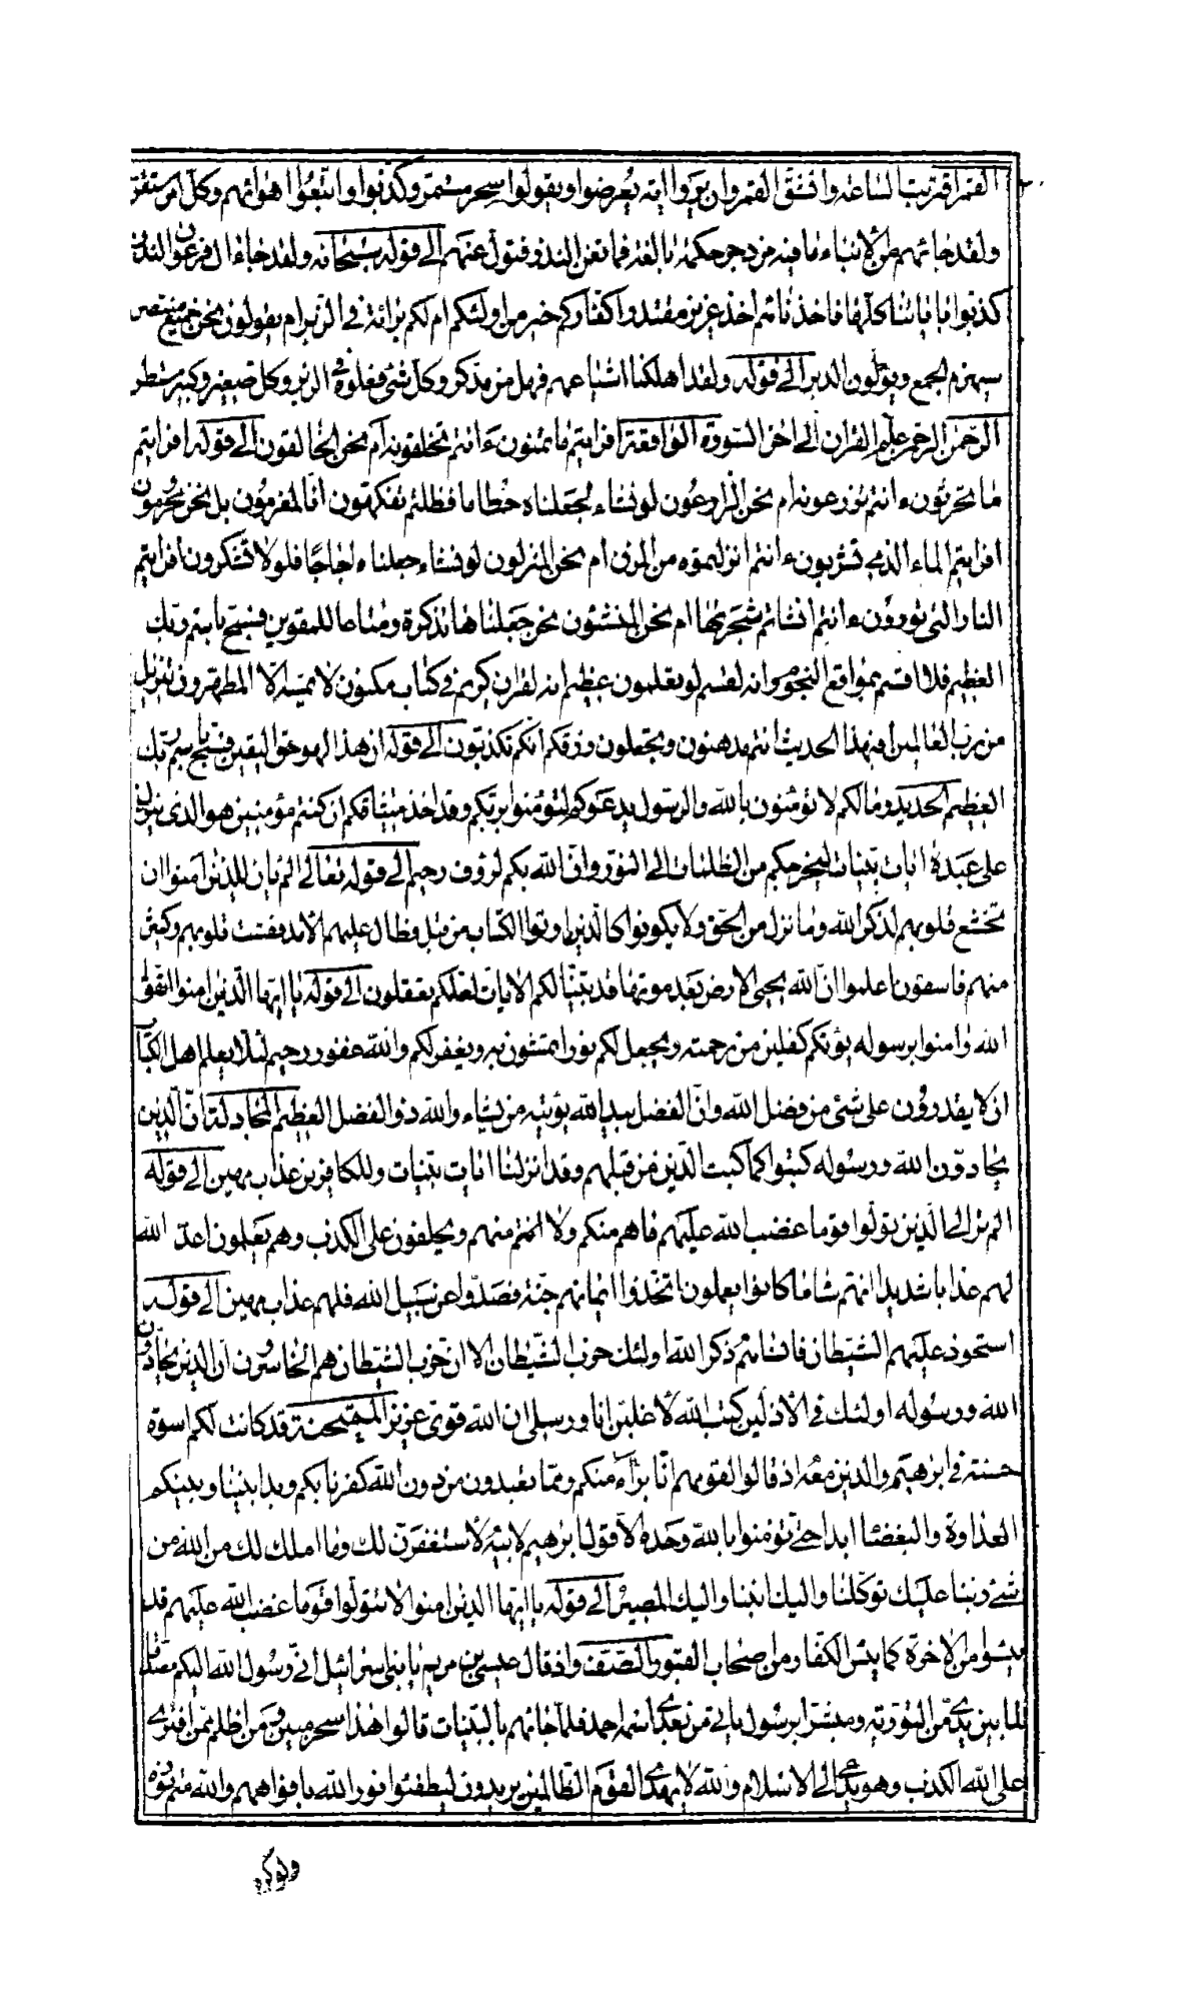 القمر اقتربت الساعة وانشق القمر وان يروا اية يعرضوا ويقولوا سحر مستمر وكذبوا واتبعوا اهوائهم وكل امر مستقر
ولقد جائهم من الانباء ما فيه مزدجر حكمة بالغة فما تغن النذر فتول عنهم الى قوله سبحانه ولقد جاء ال فرعون النذر
كذبوا باياتنا كلها فاخذناهم اخذ عزيز مقتدر اكفاركم خير من اولئكم ام لكم برائة في الزبر ام يقولون نحن جميع منتصر
سيهزم الجمع ويولون الدبر الى قوله ولقد اهلكنا اشياعهم فهل من مدكر وكل شئ فعلوه في الزبر وكل صغير وكبير مستطر
الرحمن الرحمن علم القران الى اخر السورة الواقعة افرايتم ما تمنون ءانتم تخلقونه ام نحن الخالقون الى قوله افرايتم
ما تحرثون ءانتم تزرعونه ام نحن الزارعون لو نشاء لجعلناه حطاما فظلتم تفكهون انا لمغرمون بل نحن محرومون
افرايتم الماء الذي تشربون ءانتم انزلتموه من المزن ام نحن المنزلون لو نشاء جعلناه اجاجا فلولا تشكرون افرايتم
النار التي تورون ءانتم انشاتم شجرتها ام نحن المنشئون نحن جعلناها تذكرة ومتاعا للمقوين فسبح باسم ربك
العظيم فلا اقسم بمواقع النجوم وانه لقسم لو تعلمون عظيم انه لقران كريم في كتاب مكنون لا يمسه الا المطهرون تنزيل
من رب العالمين افبهذا الحديث انتم مدهنون وتجعلون رزقكم انكم تكذبون الى قوله ان هذا لهو حق اليقين فسبح باسم ربك
العظيم الحديد وما لكم لا تؤمنون بالله والرسول يدعوكم لتؤمنوا بربكم وقد اخذ ميثاقكم ان كنتم مؤمنين هو الذي ينزل
على عبده ايات بينات ليخرجكم من الظلمات الى النور وان الله بكم لرؤف رحيم الى قوله تعالى الم يان للذين امنوا ان
تخشع قلوبهم لذكر الله وما نزل من الحق ولا يكونوا كالذين اوتوا الكتاب من قبل فطال عليهم الامد فقست قلوبهم وكثير
منهم فاسقون اعلموا ان الله يحيي الارض بعد موتها قد بينا لكم الايات لعلكم تعقلون الى قوله يا ايها الذين امنوا اتقوا
الله وامنوا برسوله يؤتكم كفلين من رحمته ويجعل لكم نورا تمشون به ويغفر لكم والله غفور رحيم لئلا يعلم اهل الكتاب
ان لا يقدرون على شئ من فضل الله وان الفضل بيد الله يؤتيه من يشاء والله ذو الفضل العظيم المجادلة ان الذين
يحادون الله ورسوله كبتوا كما كبت الذين من قبلهم وقد انزلنا ايات بينات وللكافرين عذاب مهين الى قوله
الم تر الى الذين تولوا قوما غضب الله عليهم ما هم منكم ولا منهم ويحلفون على الكذب وهم يعلمون اعد الله
لهم عذابا شديدا انهم ساء ما كانوا يعملون اتخذوا ايمانهم جنة فصدوا عن سبيل الله فلهم عذاب مهين الى قوله
استحوذ عليهم الشيطان فانساهم ذكر الله اولئك حزب الشيطان الا ان حزب الشيطان هم الخاسرون ان الذين يحادون
الله ورسوله اولئك في الاذلين كتب الله لاغلبن انا ورسلي ان الله قوى عزيز الممتحنة قد كانت لكم اسوة
حسنة في ابرهيم والذين معه اذ قالوا لقومهم انا برآء منكم ومما تعبدون من دون الله كفرنا بكم وبدا بيننا وبينكم
العداوة والبغضاء ابدا حتى تؤمنوا بالله وحده الا قول ابرهيم لابيه لاستغفرن لك وما املك لك من الله من
شئ ربنا عليك توكلنا واليك انبنا واليك المصير الى قوله يا ايها الذين امنوا لا تتولوا قوما غضب الله عليهم قد
يئسوا من الاخرة كما يئس الكفار من اصحاب القبور الصف واذ قال عيسى بن مريم يا بني اسرائيل اني رسول الله اليكم مصدقا
لما بين يدي من التورية ومبشرا برسول ياتي من بعدي اسمه احمد فلما جائهم بالبينات قالوا هذا سحر مبين ومن اظلم ممن افترى
على الله الكذب وهو يدعى الى الاسلام والله لا يهدي القوم الظالمين يريدون ليطفئوا نور الله بافواههم والله متم نوره
ولو كره